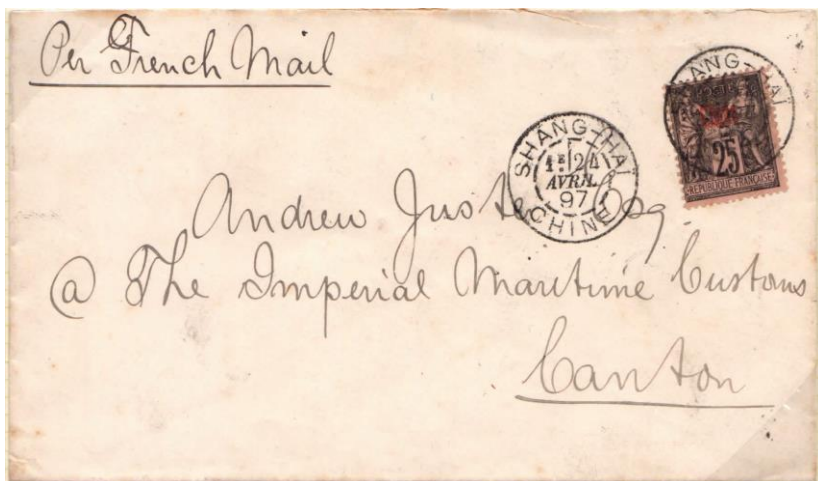 Per French Mail
SHANG-HAÏ
1E 24
AVRIL
97
CHINE
ANG-HAÏ
25
REPUBLIQUE FRANÇAISE
Andrew Juste Esq
@ The Imperial Maritime Customs
Canton